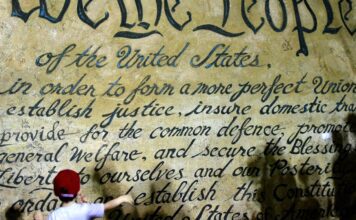 We the People
of the United States,
in order to form a more perfect Union
establish justice, insure domestic tra
provide for the common defence, promo
general Welfare, and secure the Blessing
Libert to ourselves and our Posterit
ordain and establish this Constitu
United States